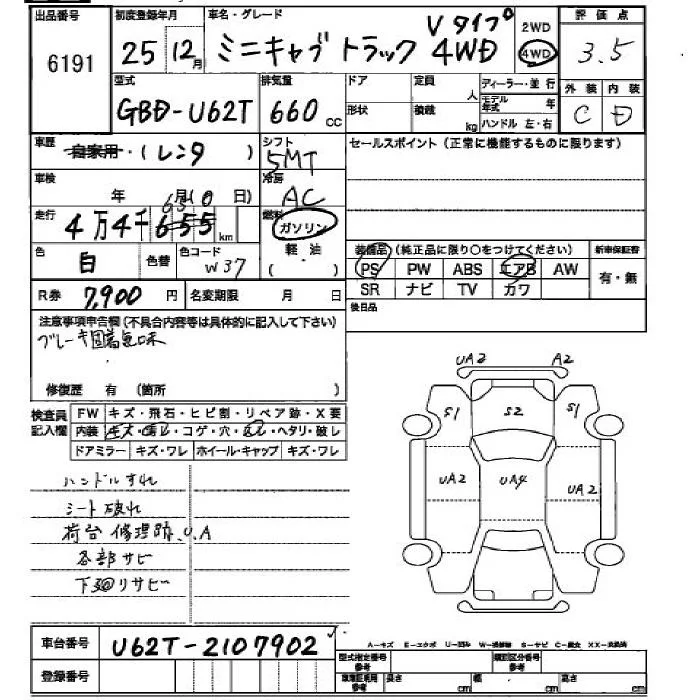 出品番号 初度登録年月 車名・グレード 評価点
6191 25 12月 ミニキャブトラック Vタイプ 4WD 2WD 4WD 3.5
型式 排気量 ドア 定員 人 ディーラー・並行 外装 内装
GBD-U62T 660 cc 形状 積載 kg モデル年式 年 C D
ハンドル 左・右
車歴 自家用・(レンタ) シフト 5MT セールスポイント(正常に機能するものに限ります)
車検 年 月 日) 冷房 AC
走行 4万4千655km 燃料 ガソリン
色 白 色替 色コード W37 軽油 ( )
装備品(純正品に限り○をつけてください) 新車保証書
PS PW ABS エアB AW 有・無
SR ナビ TV カワ
R券 7,900円 名変期限 月 日 後日品
注意事項申告欄(不具合内容等は具体的に記入して下さい)
ブレーキ固着気味
修復歴 有 (箇所 )
検査員記入欄 FW キズ・飛石・ヒビ割・リペア跡・X要
内装 キズ・汚レ・コゲ・穴・ ・ヘタリ・破レ
ドアミラー キズ・ワレ ホイール・キャップ キズ・ワレ
ハンドルすれ
シート破れ
荷台修理跡、U.A
各部サビ
下回リサビ
UA2 A2
S1 S2 S1
UA2 UA4 UA2
車台番号 U62T-2107902
登録番号
A-キズ E-エクボ U-凹み W-補修跡 S-サビ C-腐食 XX-交換済
型式指定番号 参考 類別区分番号 参考
車庫証明用 参考 長さ cm 幅 cm 高さ cm